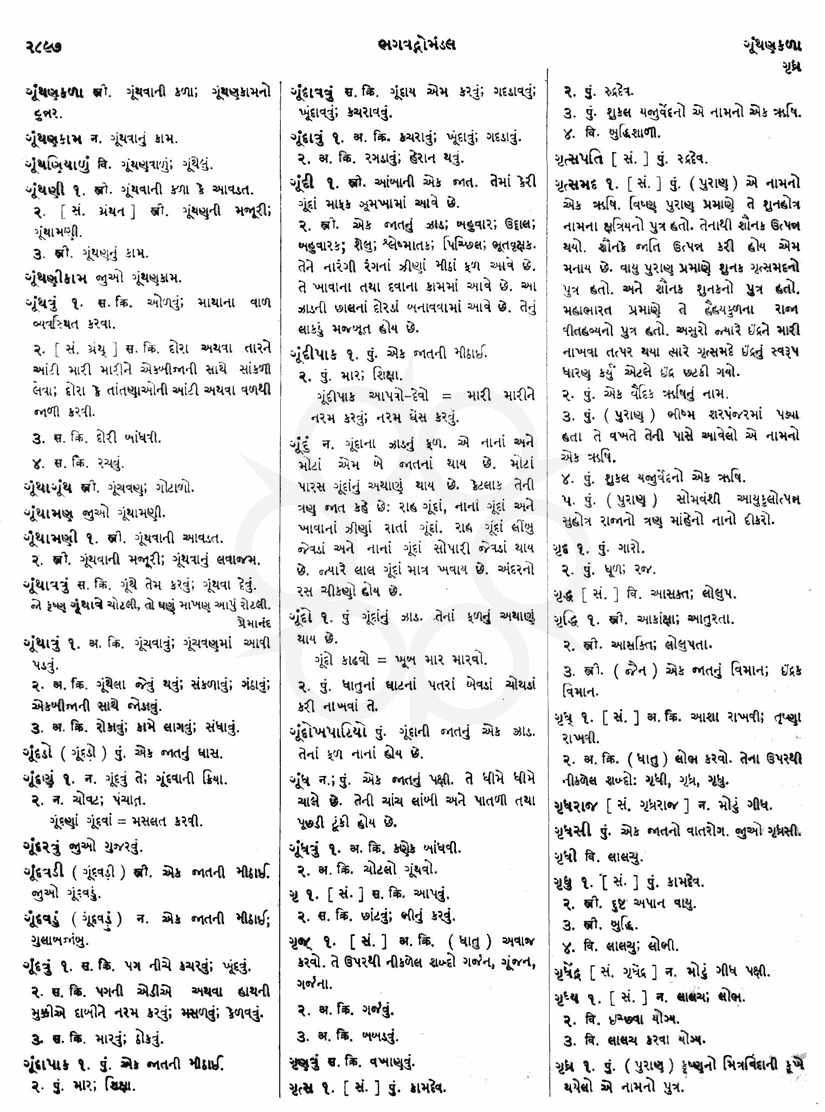 ૨૮૯૭
ભગવદ્ગોમંડલ
ગૂંથણકળા
ગૃધ્ર
ગૂંથણકળા સ્ત્રી. ગૂંથવાની કળા; ગૂંથણકામનો
હુન્નર.
ગૂંથણકામ ન. ગૂંથવાનું કામ.
ગૂંથણિયાળું વિ. ગૂંથણવાળું; ગૂંથેલું.
ગૂંથણી ૧. સ્ત્રી. ગૂંથવાની કળા કે આવડત.
૨. [ સં. ગ્રંથન ] સ્ત્રી. ગૂંથણની મજૂરી;
ગૂંથામણી.
૩. સ્ત્રી. ગૂંથણનું કામ.
ગૂંથણીકામ જુઓ ગૂંથણકામ.
ગૂંથવું ૧. સ. ક્રિ. ઓળવું; માથાના વાળ
વ્યવસ્થિત કરવા.
૨. [ સં. ગ્રંથ્ ] સ. ક્રિ. દોરા અથવા તારને
આંટી મારી મારીને એકબીજાની સાથે સાંકળી
લેવા; દોરા કે તાંતણાઓની આંટી અથવા વળથી
જાળી કરવી.
૩. સ. ક્રિ. દોરી બાંધવી.
૪. સ. ક્રિ. રચવું.
ગૂંથાગૂંથ સ્ત્રી. ગૂંચવણ; ગોટાળો.
ગૂંથામણ જુઓ ગૂંથામણી.
ગૂંથામણી ૧. સ્ત્રી. ગૂંથવાની આવડત.
૨. સ્ત્રી. ગૂંથવાની મજૂરી; ગૂંથવાનું લવાજમ.
ગૂંથાવવું સ. ક્રિ. ગૂંથે તેમ કરવું; ગૂંથવા દેવું.
જો કૃષ્ણ ગૂંથાવે ચોટલી, તો ઘણું માખણ આપું રોટલી.
પ્રેમાનંદ
ગૂંથાવું ૧. અ. ક્રિ. ગૂંચવાવું; ગૂંચવણમાં આવી
પડવું.
૨. અ. ક્રિ. ગૂંથેલા જેવું થવું; સંકળાવું; ગંઠાવું;
એકબીજાની સાથે જોડાવું.
૩. અ. ક્રિ. રોકાવું; કામે લાગવું; સંધાવું.
ગૂંદડો ( ગૂંદડ઼ો ) પું. એક જાતનું ઘાસ.
ગૂંદણું ૧. ન. ગૂંદવું તે; ગૂંદવાની ક્રિયા.
૨. ન. ચોવટ; પંચાત.
ગૂંદણાં ગૂંદવાં = મસલત કરવી.
ગૂંદરવું જુઓ ગુજરવું.
ગૂંદવડી ( ગૂંદવડ઼ી ) સ્ત્રી. એક જાતની મીઠાઈ.
જુઓ ગૂંદવડું.
ગૂંદવડું ( ગૂંદવડ઼ું ) ન. એક જાતની મીઠાઈ;
ગુલાબજાંબુ.
ગૂંદવું ૧. સ. ક્રિ. પગ નીચે કચરવું; ખૂંદવું.
૨. સ. ક્રિ. પગની એડીએ અથવા હાથની
મુક્કીએ દાબીને નરમ કરવું; મસળવું; કેળવવું.
૩. સ. ક્રિ. મારવું; ઠોકવું.
ગૂંદાપાક ૧. પું. એક જાતની મીઠાઈ.
૨. પું. માર; શિક્ષા.
ગૂંદાવવું સ. ક્રિ. ગૂંદાય એમ કરવું; ગદડાવવું;
ખૂંદાવવું; કચરાવવું.
ગૂંદાવું ૧. અ. ક્રિ. કચરાવું; ખૂંદાવું; ગદડાવું.
૨. અ. ક્રિ. રગડાવું; હેરાન થવું.
ગૂંદી ૧. સ્ત્રી. આંબાની એક જાત. તેમાં કેરી
ગૂંદાં માફક ઝૂમખામાં આવે છે.
૨. સ્ત્રી. એક જાતનું ઝાડ; બહુવાર; ઉદ્દાલ;
બહુવારક; શેલુ; શ્લેષ્માતક; પિચ્છિલ; ભૂતવૃક્ષક.
તેને નારંગી રંગનાં ઝીણાં મીઠાં ફળ આવે છે.
તે ખાવાના તથા દવાના કામમાં આવે છે. આ
ઝાડની છાલનાં દોરડાં બનાવવામાં આવે છે. તેનું
લાકડું મજબૂત હોય છે.
ગૂંદીપાક ૧. પું. એક જાતની મીઠાઈ.
૨. પું. માર; શિક્ષા.
ગૂંદીપાક આપવો-દેવો = મારી મારીને
નરમ કરવું; નરમ ઘેંસ કરવું.
ગૂંદું ન. ગૂંદાના ઝાડનું ફળ. એ નાનાં અને
મોટાં એમ બે જાતનાં થાય છે. મોટાં
પારસ ગૂંદાંનું અથાણું થાય છે. કેટલાક તેની
ત્રણ જાત કહે છેઃ રાહ ગૂંદાં, નાનાં ગૂંદાં અને
ખાવાનાં ઝીણાં રાતાં ગૂંદાં. રાહ ગૂંદાં લીંબુ
જેવડાં અને નાનાં ગૂંદાં સોપારી જેવડાં થાય
છે. જ્યારે લાલ ગૂંદાં માત્ર ખવાય છે. અંદરનો
રસ ચીકણો હોય છે.
ગૂંદો ૧. પું ગૂંદાંનું ઝાડ. તેનાં ફળનું અથાણું
થાય છે.
ગૂંદો કાઢવો = ખૂબ માર મારવો.
૨. પું. ધાતુનાં ઘાટનાં પતરાં બેવડાં ચોથડાં
કરી નાખવાં તે.
ગૂંદોખપાટિયો પું. ગૂંદાની જાતનું એક ઝાડ.
તેનાં ફળ નાનાં હોય છે.
ગૂંધ ન.; પું. એક જાતનું પક્ષી. તે ધીમે ધીમે
ચાલે છે. તેની ચાંચ લાંબી અને પાતળી તથા
પૂછડી ટૂંકી હોય છે.
ગૂંધવું ૧. અ. ક્રિ. કણેક બાંધવી.
૨. અ. ક્રિ. ચોટલો ગૂંથવો.
ગૃ ૧. [ સં. ] સ. ક્રિ. આપવું.
૨. સ. ક્રિ. છાંટવું; ભીનું કરવું.
ગૃજ્ ૧. [ સં. ] અ. ક્રિ. ( ધાતુ ) અવાજ
કરવો. તે ઉપરથી નીકળેલ શબ્દો ગર્જન, ગૂંજન,
ગર્જના.
૨. અ. ક્રિ. ગર્જવું.
૩. અ. ક્રિ. બબડવું.
ગૃણવું સ. ક્રિ. વખાણવું.
ગૃત્સ ૧. [ સં. ] પું. કામદેવ.
૨. પું. રુદ્રદેવ.
૩. પું. શુકલ યજુર્વેદનો એ નામનો એક ઋષિ.
૪. વિ. બુદ્ધિશાળી.
ગૃત્સપતિ [ સં. ] પું. રુદ્રદેવ.
ગૃત્સમદ ૧. [ સં. ] પું. ( પુરાણ ) એ નામનો
એક ઋષિ. વિષ્ણુ પુરાણ પ્રમાણે તે શુનહોત્ર
નામના ક્ષત્રિયનો પુત્ર હતો. તેનાથી શૌનક ઉત્પન્ન
થયો. શૌનકે જાતિ ઉત્પન્ન કરી હોય એમ
મનાય છે. વાયુ પુરાણ પ્રમાણે શુનક ગૃત્સમદનો
પુત્ર હતો. અને શૌનક શુનકનો પુત્ર હતો.
મહાભારત પ્રમાણે તે હૈહયકુળના રાજા
વીતહવ્યનો પુત્ર હતો. અસુરો જ્યારે ઇંદ્રને મારી
નાખવા તત્પર થયા ત્યારે ગૃત્સમદે ઇંદ્રનું સ્વરૂપ
ધારણ કર્યું એટલે ઇંદ્ર છટકી ગયો.
૨. પું. એક વૈદિક ઋષિનું નામ.
૩. પું. ( પુરાણ ) ભીષ્મ શરપંજરમાં પડ્યા
હતા તે વખતે તેની પાસે આવેલો એ નામનો
એક ઋષિ.
૪. પું. શુકલ યજુર્વેદનો એક ઋષિ.
૫. પું. ( પુરાણ ) સોમવંશી આયુકુલોત્પન્ન
સુહોત્ર રાજાનો ત્રણ માંહેનો નાનો દીકરો.
ગૃદ ૧. પું. ગારો.
૨. પું. ધૂળ; રજ.
ગૃદ્ધ [ સં. ] વિ. આસક્ત; લોલુપ.
ગૃદ્ધિ ૧. સ્ત્રી. આકાંક્ષા; આતુરતા.
૨. સ્ત્રી. આસક્તિ; લોલુપતા.
૩. સ્ત્રી. ( જૈન ) એક જાતનું વિમાન; ઇંદ્રક
વિમાન.
ગૃધ્ ૧. [ સં. ] અ. ક્રિ. આશા રાખવી; તૃષ્ણા
રાખવી.
૨. અ. ક્રિ. ( ધાતુ ) લોભ કરવો. તેના ઉપરથી
નીકળેલ શબ્દો: ગૃધી, ગૃધ્ર, ગૃધુ.
ગૃધરાજ [ સં. ગૃધ્રરાજ ] ન. મોટું ગીધ.
ગૃધસી પું. એક જાતનો વાતરોગ. જુઓ ગૃધ્રસી.
ગૃધી વિ. લાલચુ.
ગૃધુ ૧. [ સં. ] પું. કામદેવ.
૨. સ્ત્રી. દુષ્ટ અપાન વાયુ.
૩. સ્ત્રી. બુદ્ધિ.
૪. વિ. લાલચુ; લોભી.
ગૃધેંદ્ર [ સં. ગૃધેંદ્ર ] ન. મોટું ગીધ પક્ષી.
ગૃધ્ય ૧. [ સં. ] ન. લાલચ; લોભ.
૨. વિ. ઇચ્છવા યોગ્ય.
૩. વિ. લાલચ કરવા યોગ્ય.
ગૃધ્ર ૧. પું. ( પુરાણ ) કૃષ્ણનો મિત્રવિંદાની કૂખે
થયેલો એ નામનો પુત્ર.